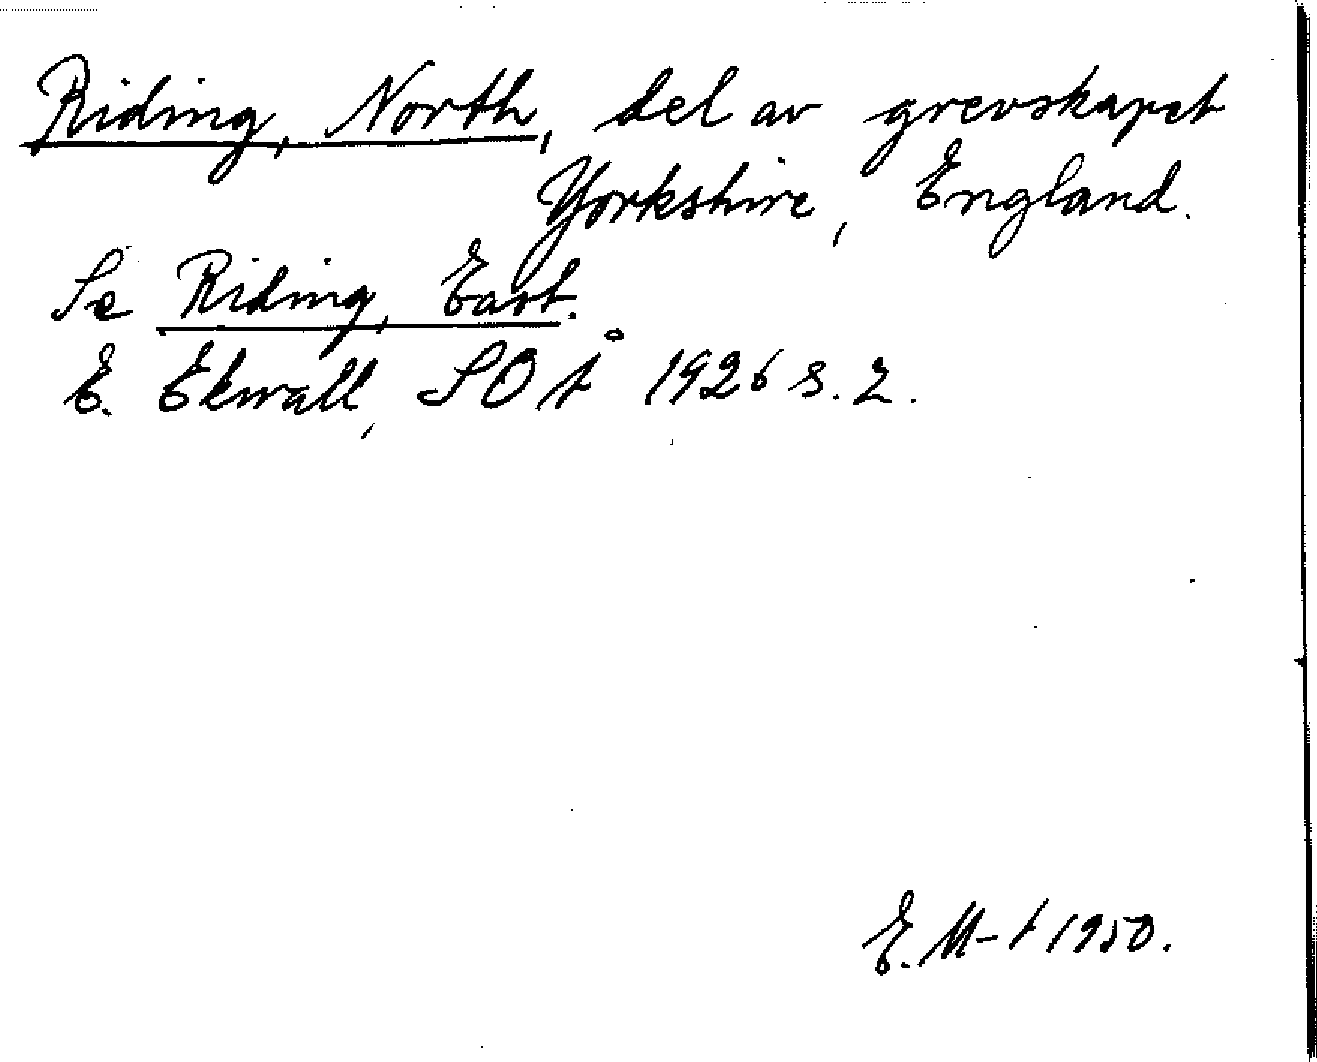 Riding, North, del av grevskapet
Yorkshire, England.
Se Riding, East.
E. Ekwall, SOÅ 1926 s. 2.
E. M-t 1950.